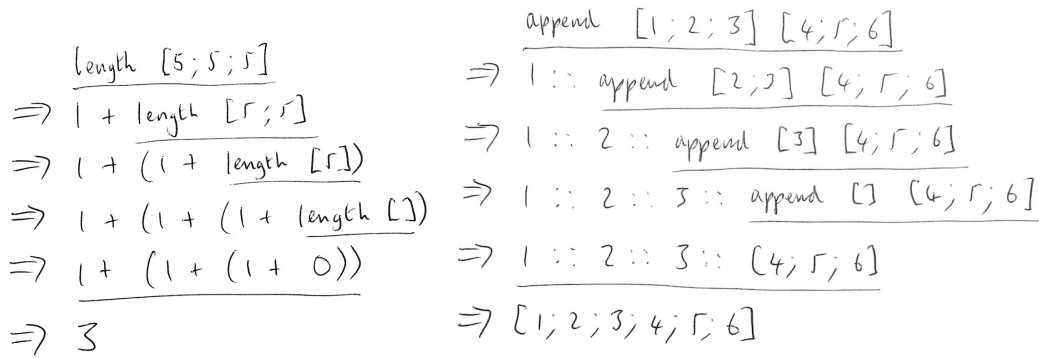 length [5; 5; 5]
⇒ 1 + length [5; 5]
⇒ 1 + (1 + length [5])
⇒ 1 + (1 + (1 + length [])
⇒ 1 + (1 + (1 + 0))
⇒ 3
append [1; 2; 3] [4; 5; 6]
⇒ 1 :: append [2; 3] [4; 5; 6]
⇒ 1 :: 2 :: append [3] [4; 5; 6]
⇒ 1 :: 2 :: 3 :: append [] [4; 5; 6]
⇒ 1 :: 2 :: 3 :: [4; 5; 6]
⇒ [1; 2; 3; 4; 5; 6]